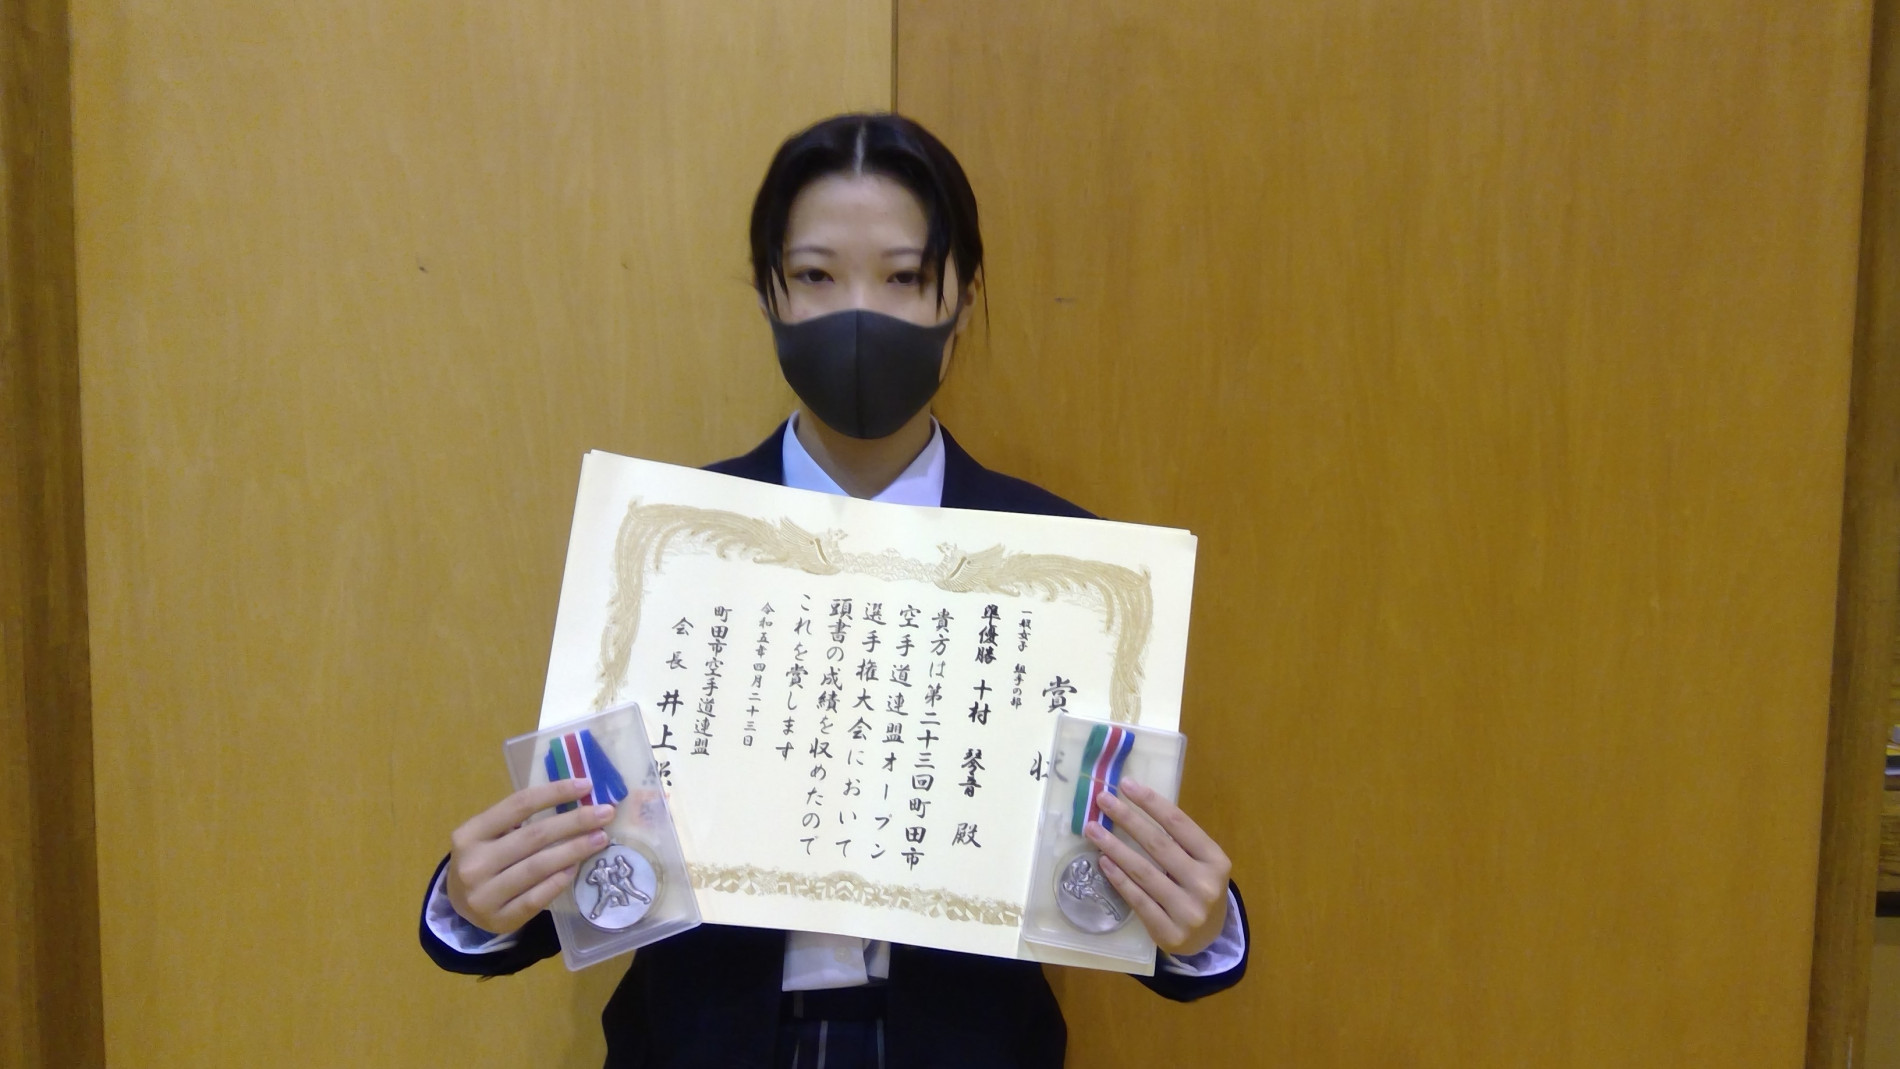 賞状
一般女子 組手の部
準優勝 十村 琴音 殿
貴方は第二十三回町田市
空手道連盟オープン
選手権大会において
頭書の成績を収めたので
これを賞します
令和五年四月二十三日
町田市空手道連盟
会長 井上